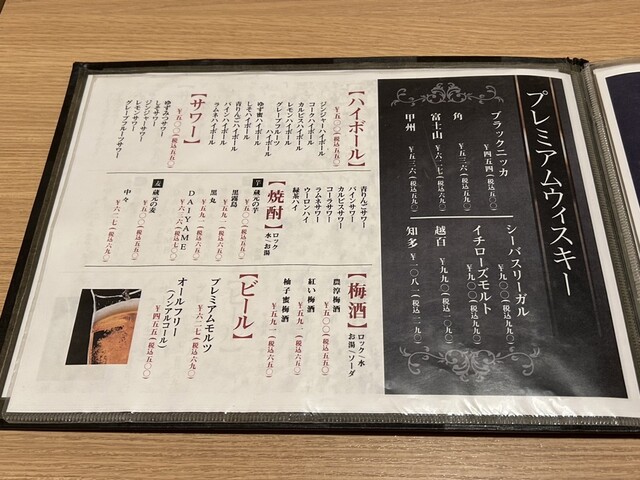 プレミアムウィスキー
ブラックニッカ
￥四五四(税込五〇〇)
角
￥五三六(税込五九〇)
富士山
￥六二七(税込六九〇)
甲州
￥五三六(税込五九〇)
シーバスリーガル
￥九〇〇(税込九九〇)
イチローズモルト
￥九〇〇(税込九九〇)
越百
￥九九〇(税込一〇九〇)
知多
￥一〇八一(税込一一九〇)
【ハイボール】
￥五〇〇(税込五五〇)
ジンジャーハイボール
コークハイボール
カルピスハイボール
レモンハイボール
グレープフルーツ
ゆず蜜ハイボール
青りんごハイボール
しそハイボール
パインハイボール
ラムネハイボール
【サワー】
￥五〇〇(税込五五〇)
ゆずみつサワー
しそサワー
ジンジャーサワー
レモンサワー
グレープフルーツサワー
青りんごサワー
パインサワー
カルピスサワー
コーラサワー
ラムネサワー
ウーロンハイ
緑茶ハイ
【焼酎】
ロック
水/お湯
芋
蔵元の芋
￥五〇〇(税込五五〇)
黒霧島
￥五九一(税込六五〇)
黒丸
￥五九一(税込六五〇)
DAIYAME
￥六二七(税込六九〇)
麦
蔵元の麦
￥五〇〇(税込五五〇)
中々
￥六二七(税込六九〇)
【梅酒】
ロック/水
お湯/ソーダ
農淳梅酒
￥五〇〇(税込五五〇)
紅い梅酒
￥五九一(税込六五〇)
柚子蜜梅酒
￥五九一(税込六五〇)
【ビール】
プレミアムモルツ
￥六二七(税込六九〇)
オールフリー
(ノンアルコール)
￥四五五(税込五〇〇)